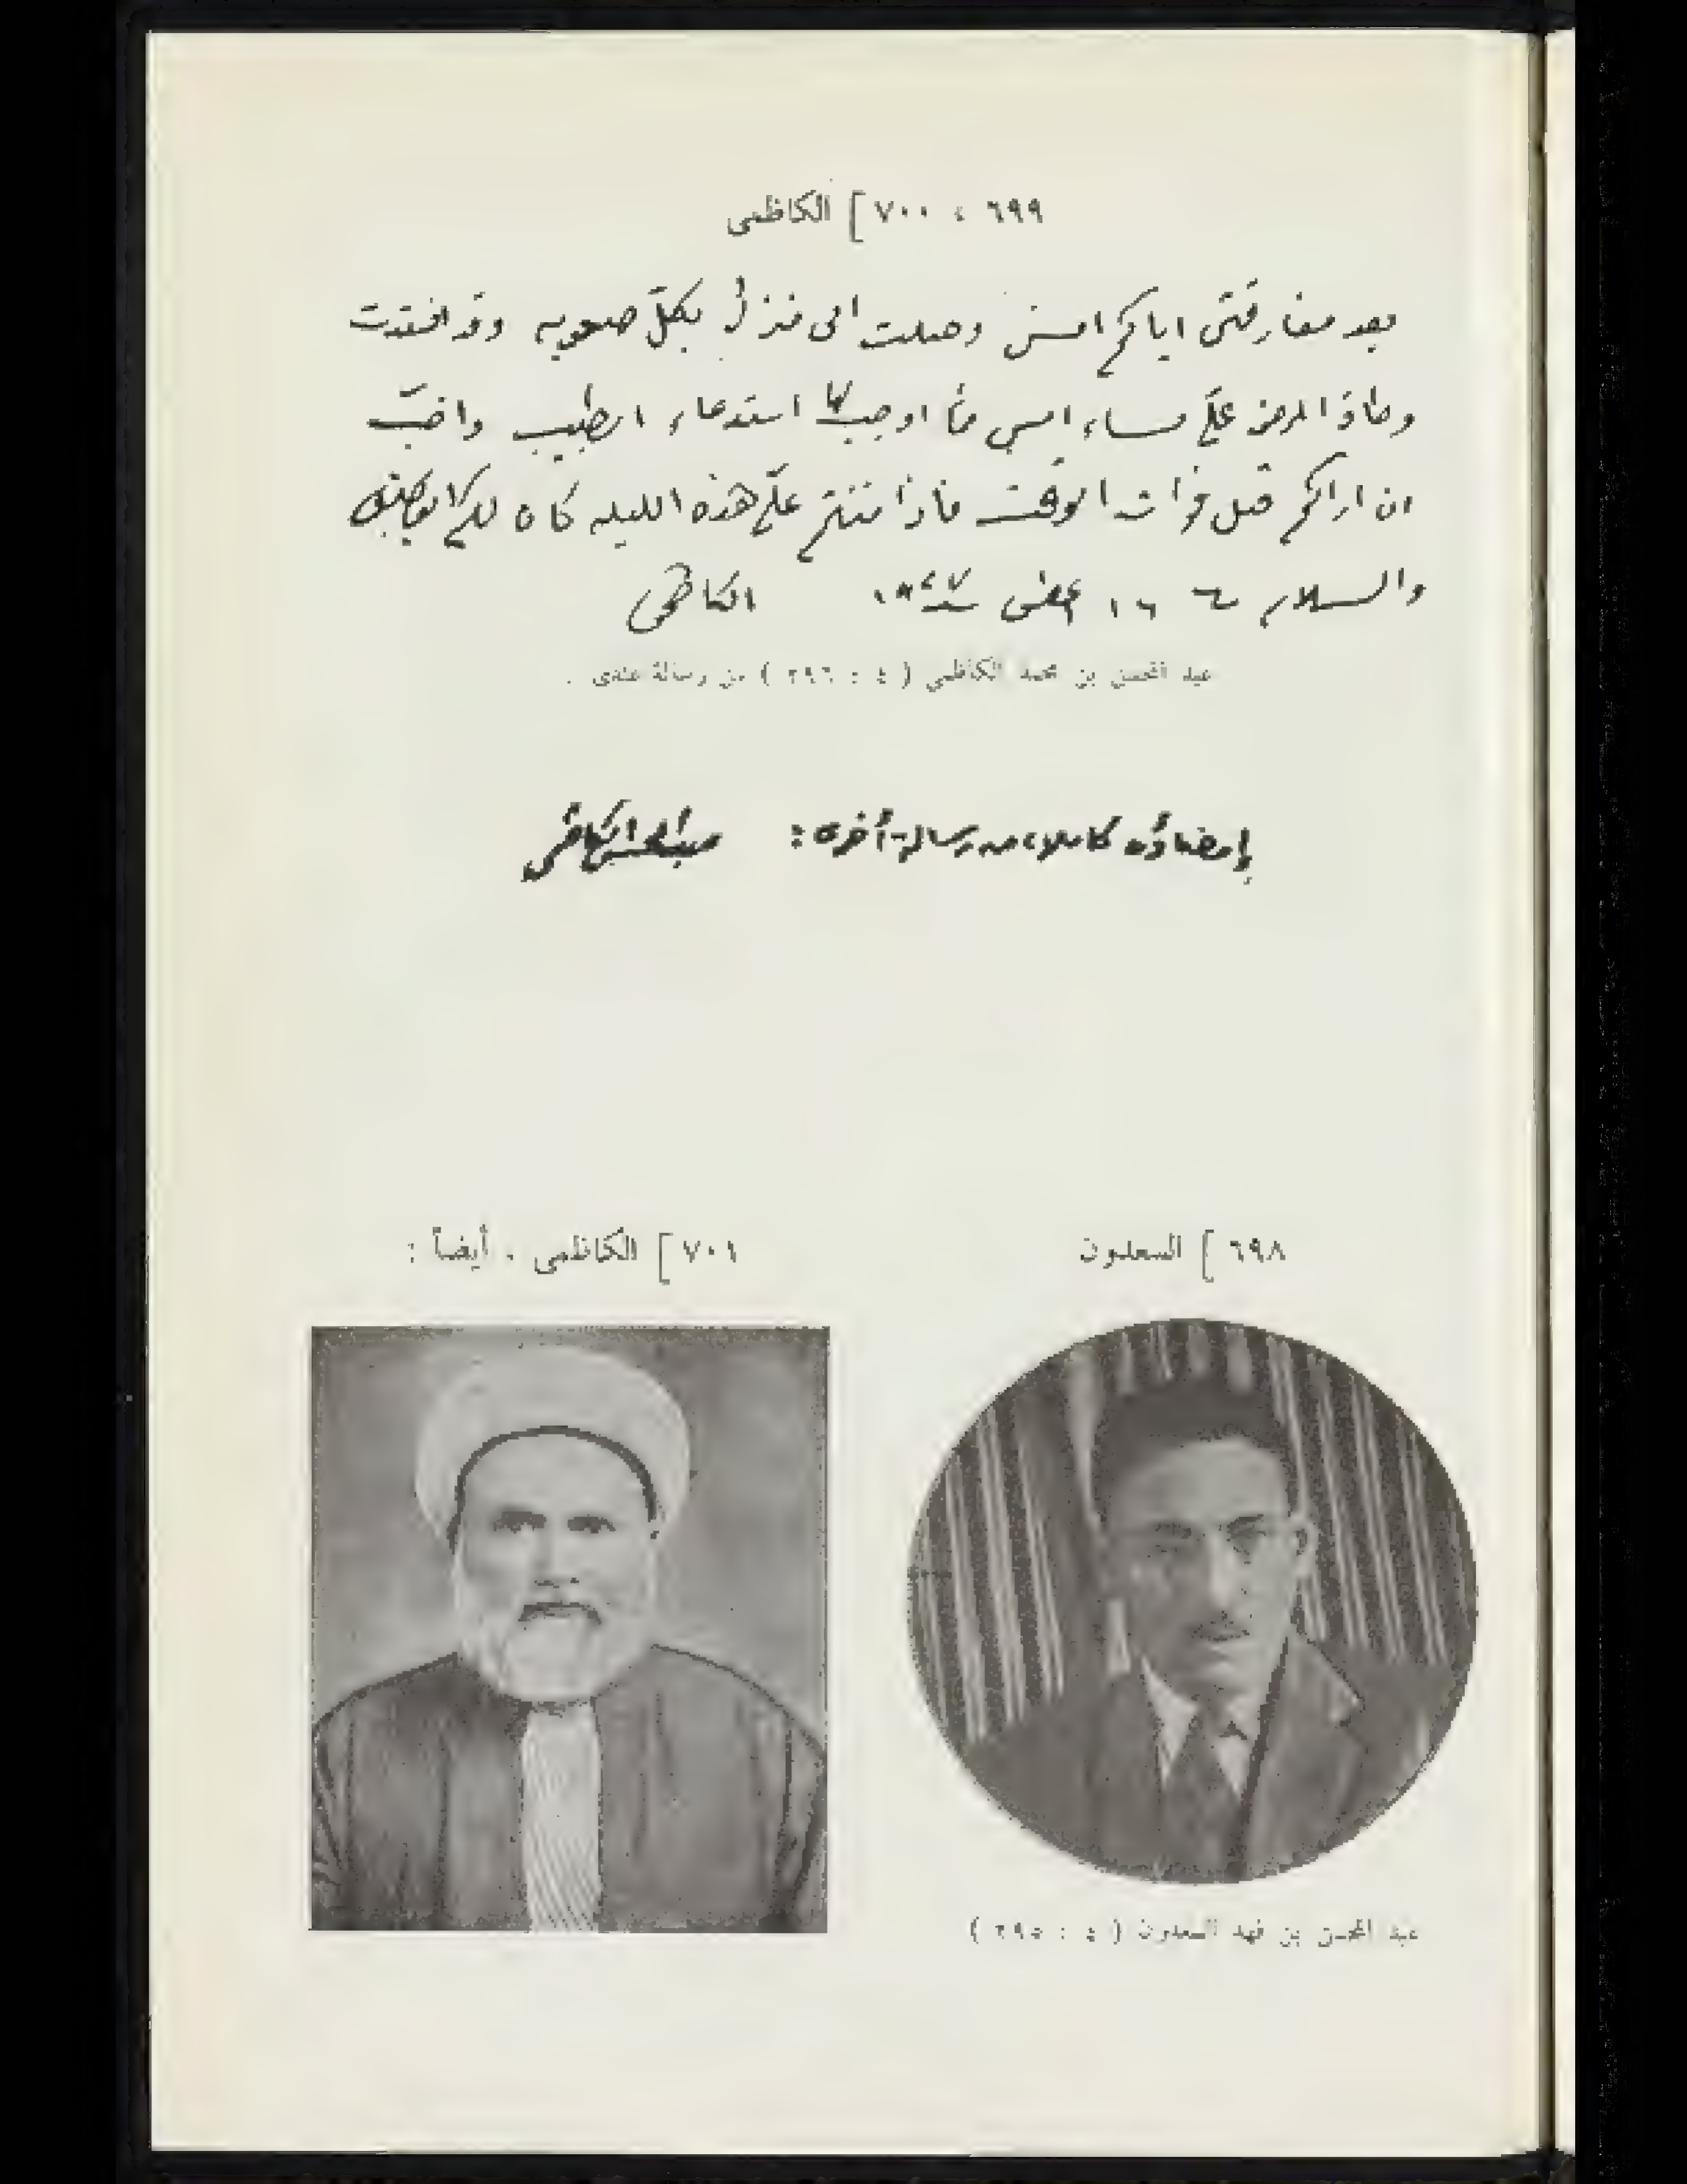 ٦٩٩ ، ٧٠٠ ] الكاظمي
بعد مفارقتي اياكم امس وصلت الى منزلي بكل صعوبه وقد اشتدت
وطأة المرض عليّ مساء امس مما اوجب استدعاء الطبيب واحبّ
ان اراكم قبل فوات الوقت فاذا عليّ هذه الليله كان لكم
والسلام ١٦ اغسطس سنة ١٩٢٧ الكاظمي
عبد المحسن بن محمد الكاظمي ( ٤ : ٢٩٦ ) من رسالة عندي .
إمضاؤه كاملا، من رسالة أخرى : عبد المحسن الكاظمي
٦٩٨ ] السعدون
٧٠١ ] الكاظمي ، أيضاً :
عبد المحسن بن فهد السعدون ( ٤ : ٢٩٥ )